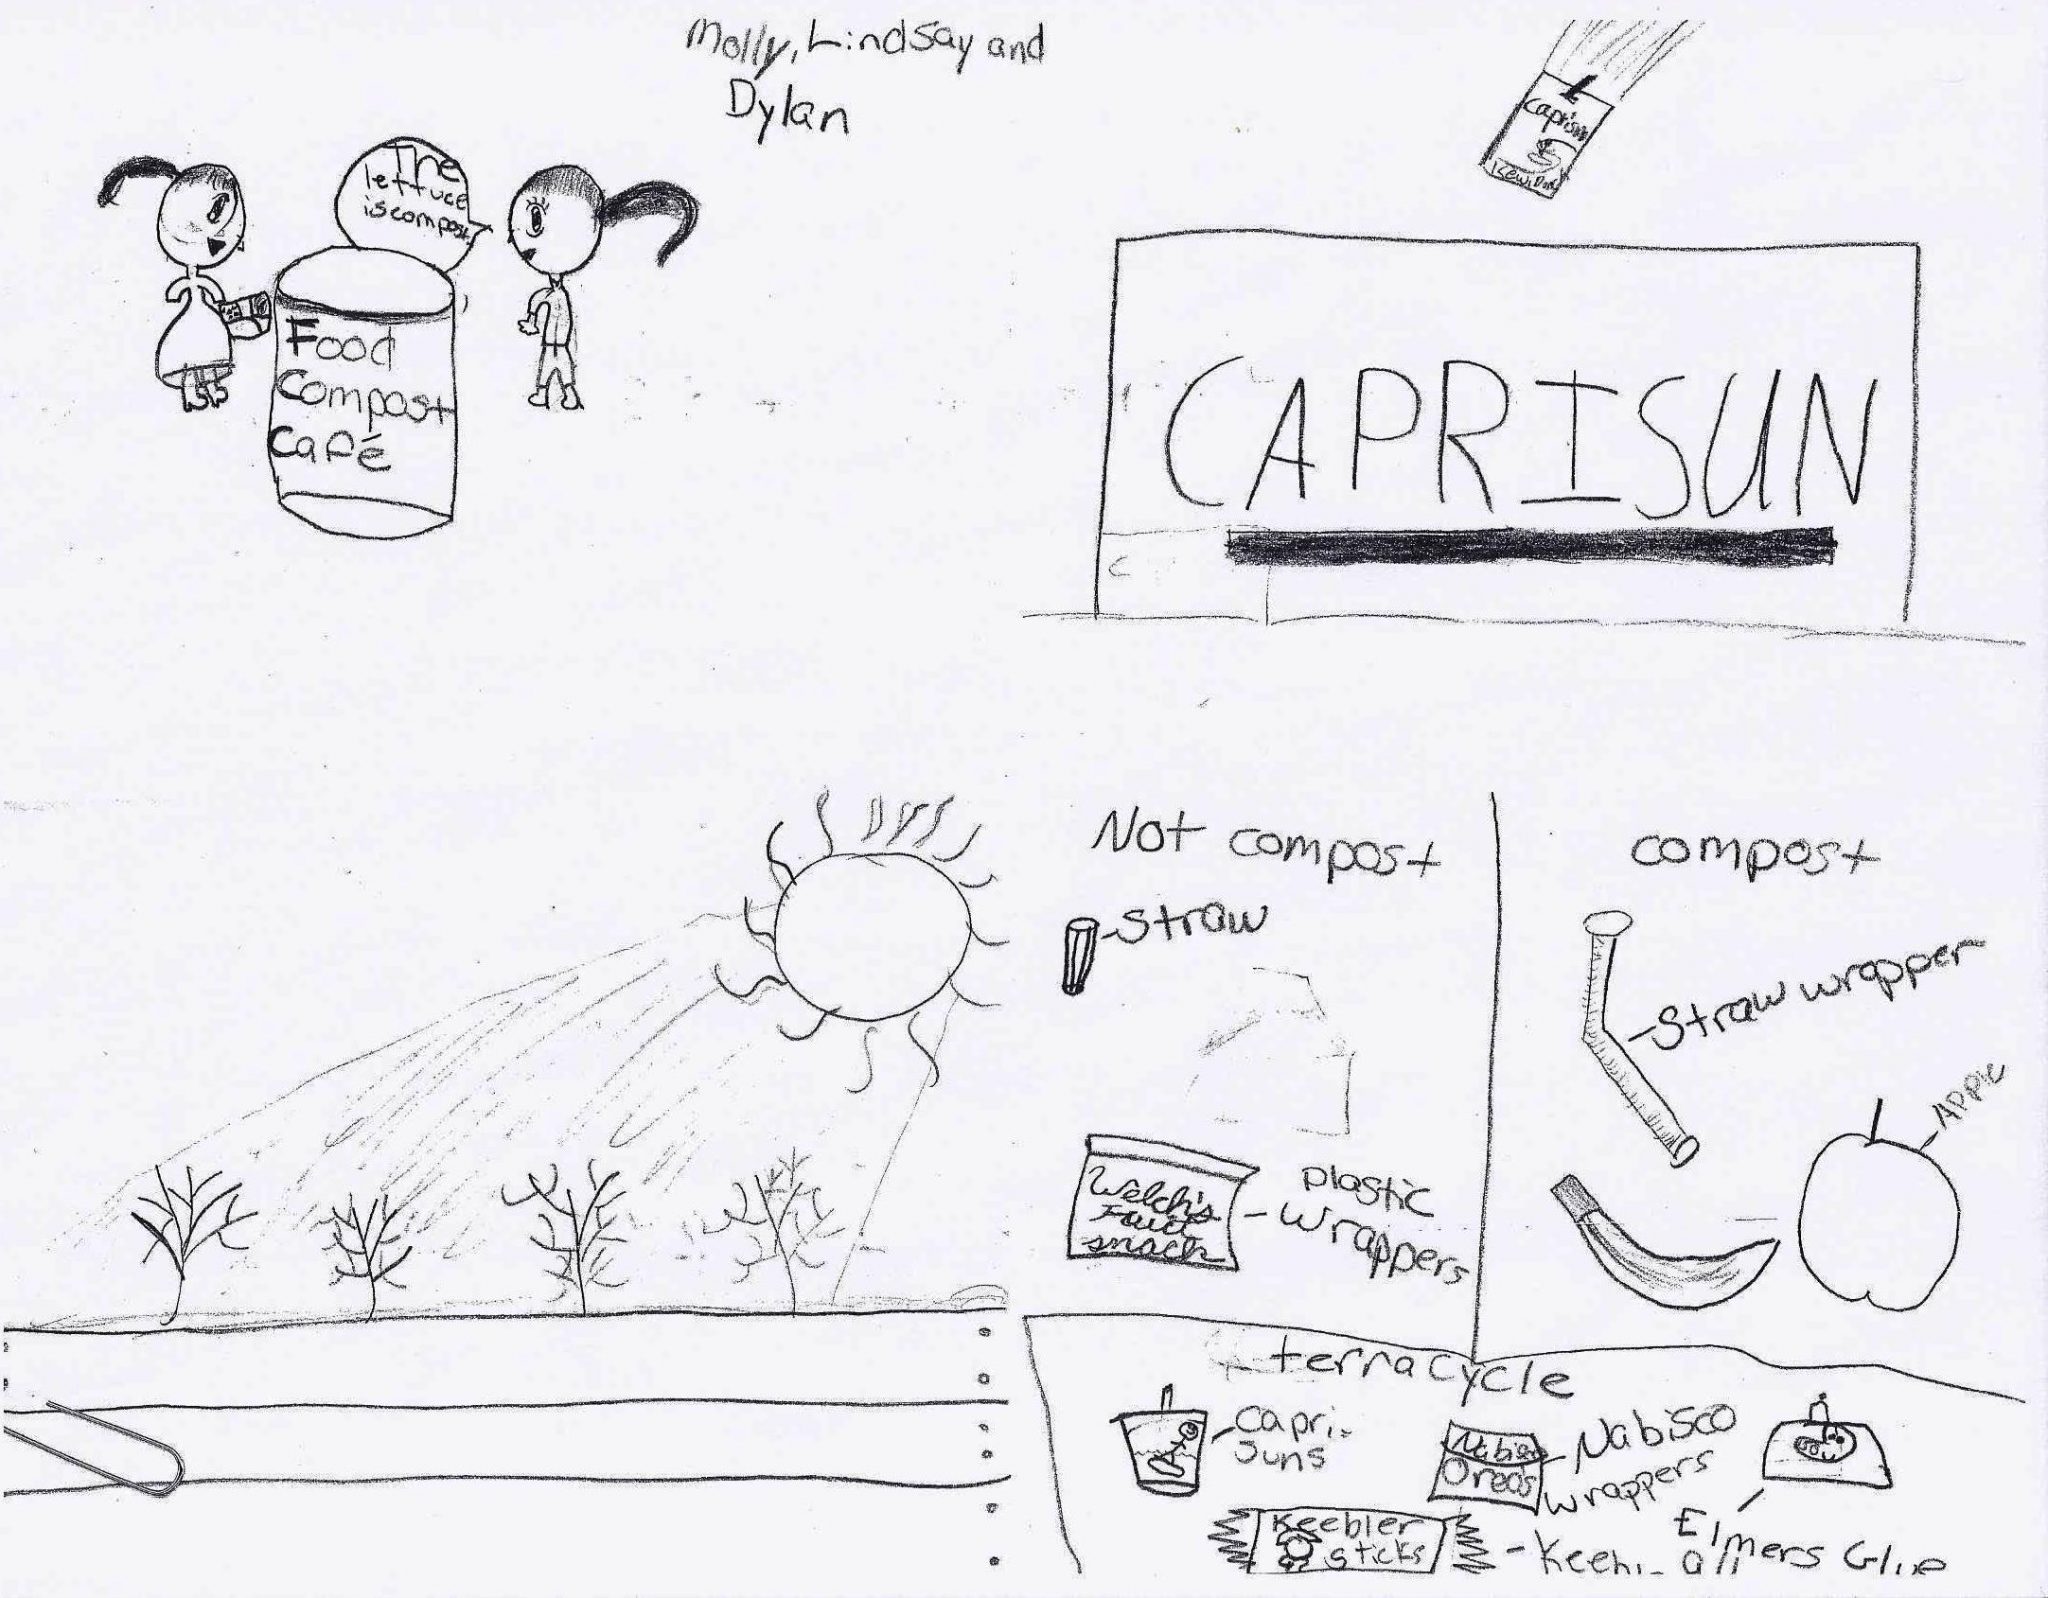 Molly, Lindsay and
Dylan
The
lettuce
is compost
Food
Compost
Café
Caprisun
CAPRISUN
Not compost
straw
Welch's
Fruit
snack
plastic
wrappers
compost
straw wrapper
Apple
terracycle
Capri-
suns
Nabisco
Oreos
Nabisco
wrappers
Keebler
sticks
Elmers Glue
all